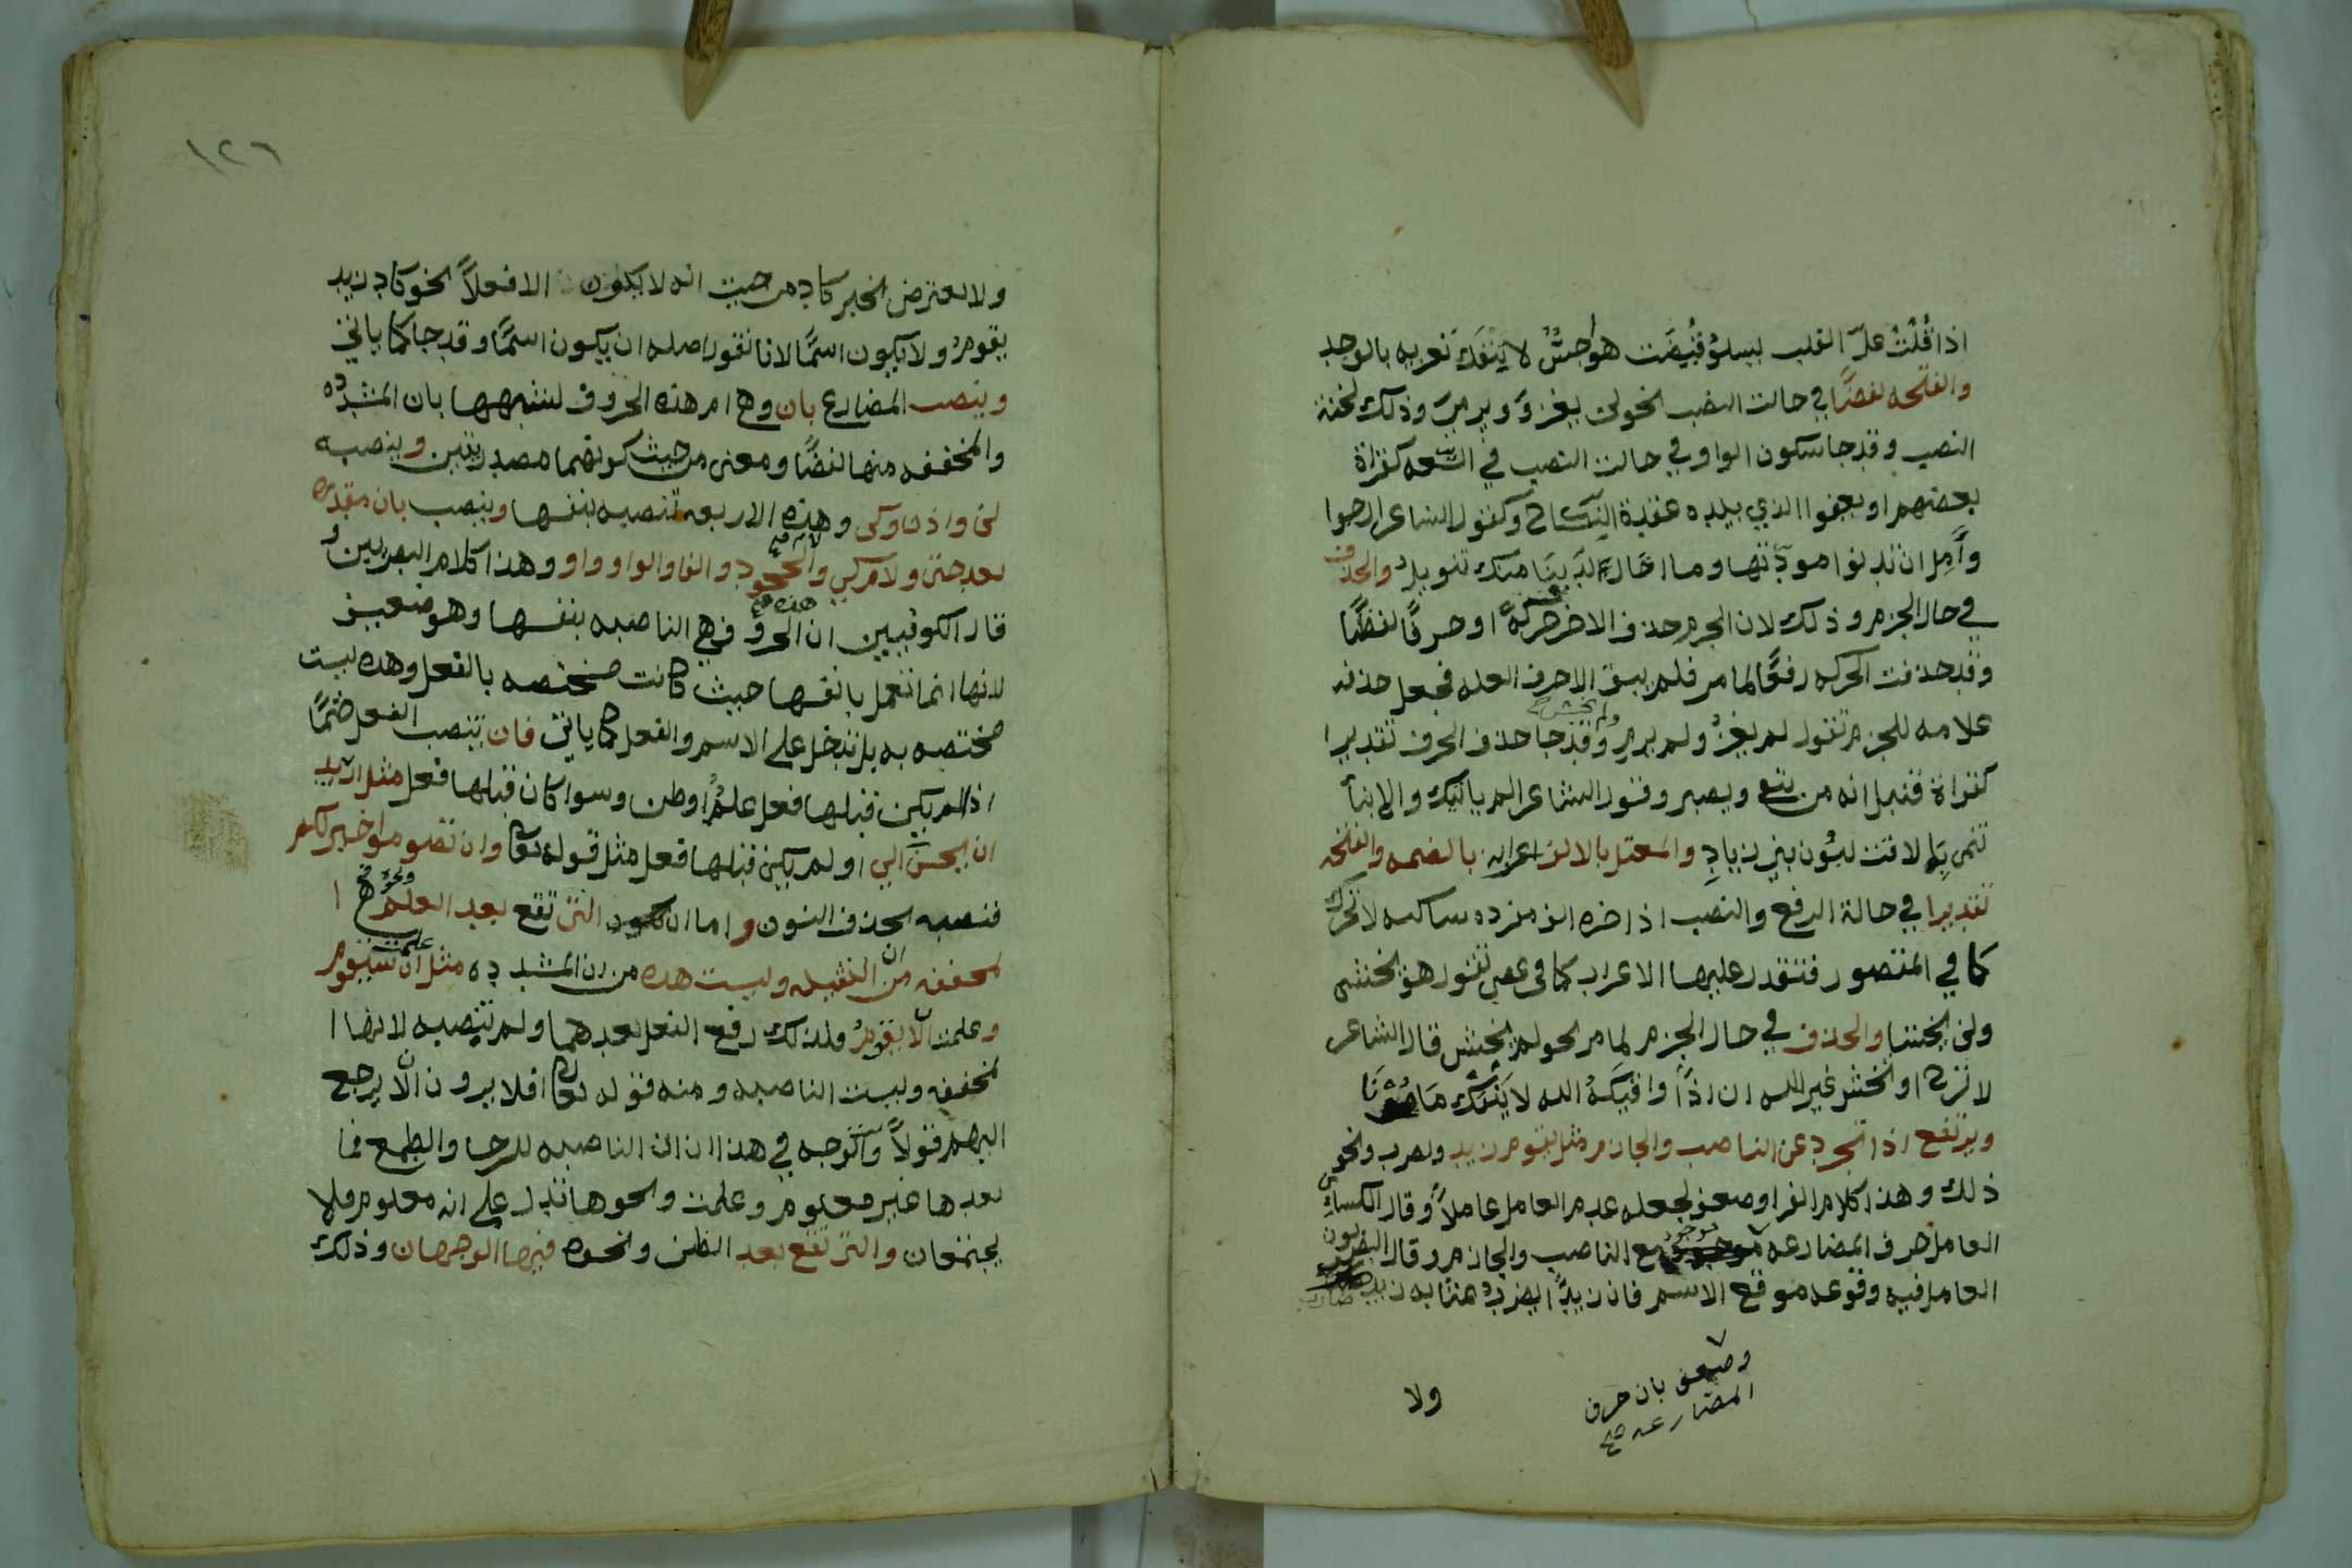 اذا قلت علّ القلب يسلو قيضت هواجس لا ينفك تغريه بالوجد
والفتحه لفظًا في حالت النصب نحو لن يغزوَ ويرميَ وذلك لخفة
النصب وقد جا سكون الواو في حالت النصب في السعه كقراة
بعضهم او يعفوا الذي بيده عقدة النكاح وكقول الشاعر ارجوا
وآمل ان تدنوا مودتها وما اخال لدينا منك تنويل والحذف
في حال الجزم وذلك لان الجزم حذف الاخر حركة او حرفًا لفظًا
وقد حذفت الحركه رفعًا لما مر فلم يبق الا حرف العله فجعل حذفه
علامه للجزم تقول لم يغز ولم يرم ولم يخش وقد جا حذف الحرف تقديرا
كقراة قنبل انه من يتق ويصبر وقول الشاعر الم ياتيك والانبأ
تنمي بما لاقت لبون بني زيادِ والمعتل بالالف اعرابه بالضمه والفتحه
تقديرا في حالة الرفع والنصب اذ اخره الف مفرده ساكنه لا تحرك
كما في المقصور فتقدر عليها الاعراب كما في عصى تقول هو يخشى
ولن يخشا والحذف في حال الجزم لما مر نحو لم يخش قال الشاعر
لا ترج او تخش غير الله ان اذًا واقيكه الله لا ينفك مامونا
ويرتفع اذا تجرد عن الناصب والجازم مثل يقوم زيد ويضرب ونحو
ذلك وهذا كلام الفرا وضعف لجعله عدم العامل عاملاً وقال الكسائي
العامل حرف المضارعه موجود مع الناصب والجازم وقال البصريون
العامل فيه وقوعه موقع الاسم فان زيدًا يضرب بمثابه زيد ضارب
وضعف بان حرف
المضارعه صح
ولا
١٢٦
ولا يعترض بخبر كاد من حيث انه لا يكون الا فعلاً نحو كاد زيد
يقوم ولا يكون اسمًا لانا نقول اصله ان يكون اسمًا وقد جا كما ياتي
وينصب المضارع بان وهي ام هذه الحروف لشبهها بان المشدده
والمخففه منها لفظًا ومعنى من حيث كونهما مصدريتين وينصبه
لن واذن وكي وهذه الاربعه تنصبه بنفسها وينصب بان مقدره
بعد حتى ولام كي ولام الجحود والفا والواو واو وهذا كلام البصريين و
قال الكوفيين ان هذه الحروف هي الناصبه بنفسها وهو ضعيف
لانها انما تعمل بانفسها حيث كانت مختصه بالفعل وهذه ليست
مختصه به بل تدخل على الاسم والفعل كما ياتي فان تنصب الفعل حتمًا
اذا لم يكن قبلها فعل علم او ظن وسوا كان قبلها فعل مثل اريد
ان تحسن الي او لم يكن قبلها فعل مثل قوله تعالى وان تصوموا خير لكم
فنصبه بحذف النون واما ان التي تقع بعد العلم ونحوه فهي ا
لمخففه من ان الثقيله وليست هذه من ان المشدده مثل علمت ان سيقوم
وعلمت ان لا يقوم ولذلك رفع الفعل بعدهما ولم تنصبه لانها ا
لمخففه وليست الناصبه ومنه قوله تعالى افلا يرون ان لا يرجع
اليهم قولاً والوجه في هذا ان ان الناصبه للرجا والطمع فما
بعدها غير معلوم وعلمت ونحوها تدل على انه معلوم فلا
يجتمعان والتي تقع بعد الظن ونحوه فيها الوجهان وذلك